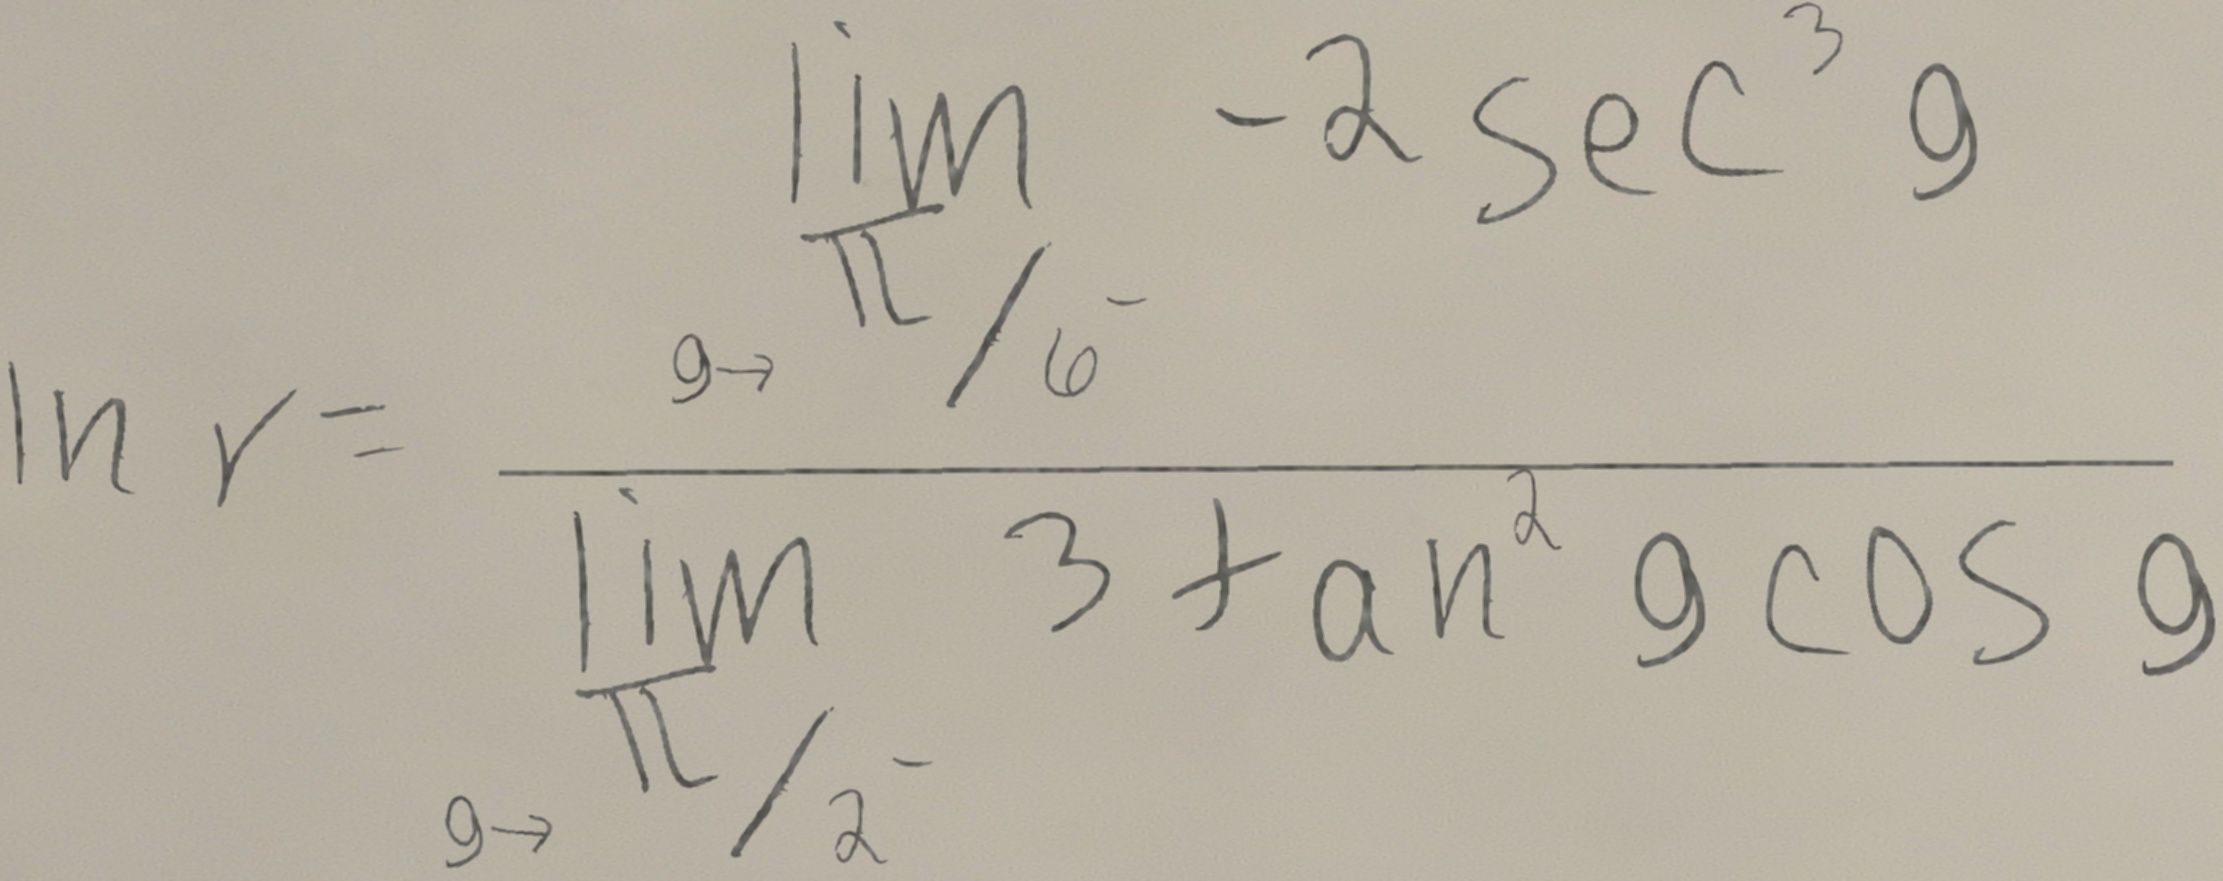 ln r = \frac{\lim_{g \to \pi/6^-} -2 \sec^3 g}{\lim_{g \to \pi/2^-} 3 \tan^2 g \cos g}